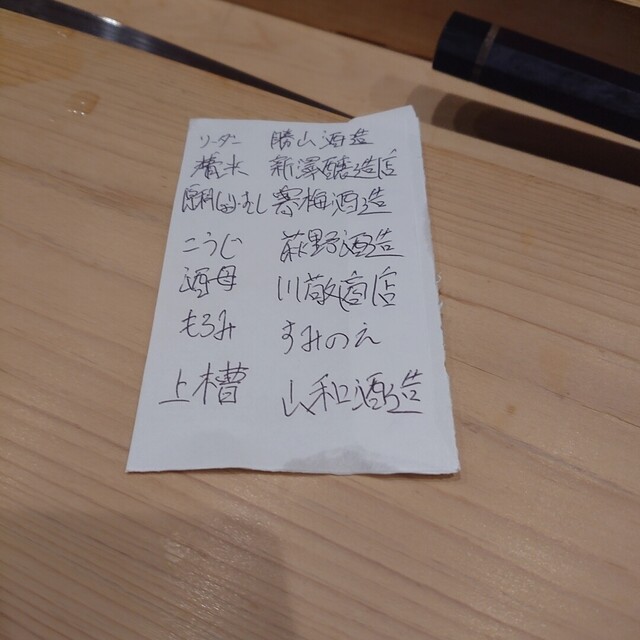 リーダー 勝山酒造
精米 新澤醸造店
原料処理・むし 寒梅酒造
こうじ 萩野酒造
酒母 川敬商店
もろみ すみのえ
上槽 山和酒造